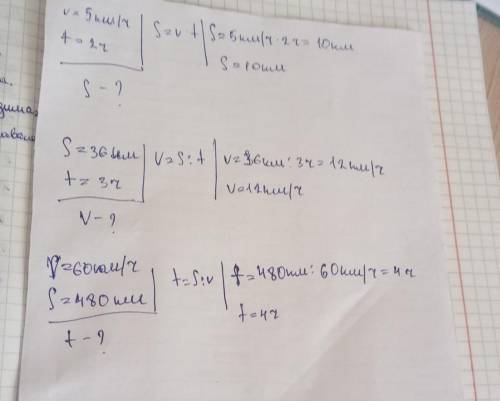 v = 5км/ч
t = 2ч
S = v t
S = 5км/ч · 2ч = 10км
S = 10км
S - ?
S = 36км
t = 3ч
V = S : t
v = 36км : 3ч = 12км/ч
v = 12км/ч
V - ?
V = 60км/ч
S = 480км
t = S : v
t = 480км : 60км/ч = 4ч
t = 4ч
t - ?